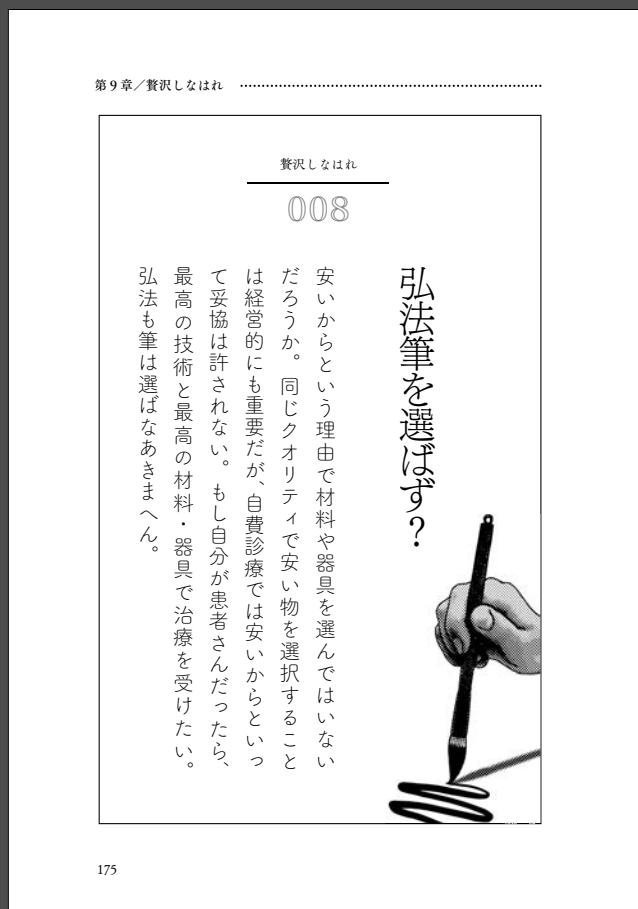 第9章／贅沢しなはれ
贅沢しなはれ
008
弘法筆を選ばず？
安いからという理由で材料や器具を選んではいない
だろうか。同じクオリティで安い物を選択すること
は経営的にも重要だが、自費診療では安いからといっ
て妥協は許されない。もし自分が患者さんだったら、
最高の技術と最高の材料・器具で治療を受けたい。
弘法も筆は選ばなあきまへん。
175